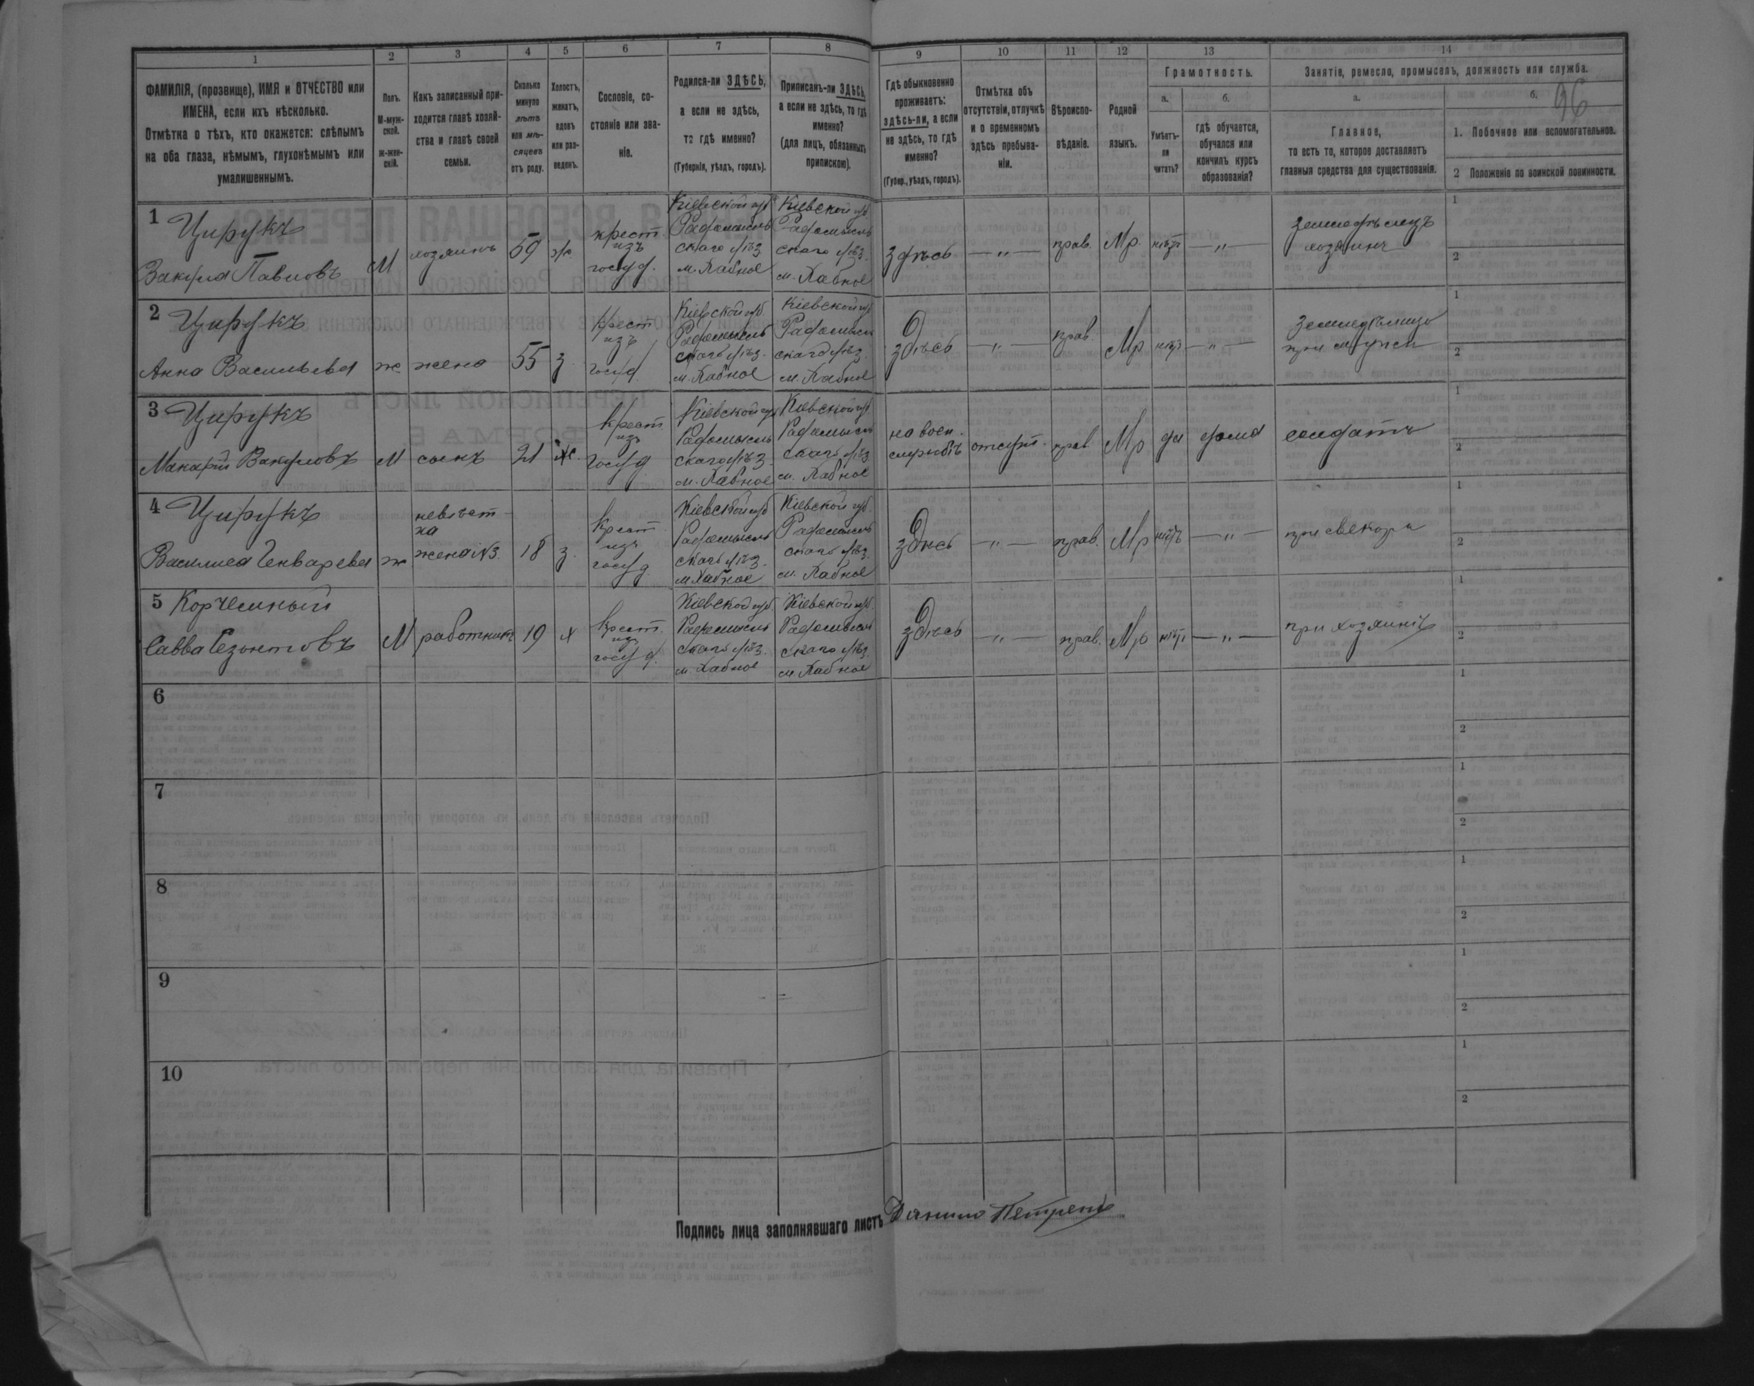 1 2 3 4 5 6 7 8 9 10 11 12 13 14
ФАМИЛІЯ, (прозвище), ИМЯ и ОТЧЕСТВО или
ИМЕНА, если ихъ нѣсколько.
Отмѣтка о тѣхъ, кто окажется: слѣпымъ
на оба глаза, нѣмымъ, глухонѣмымъ или
умалишеннымъ.
Полъ.
М-муж-
ской.
ж-жен-
скій.
Какъ записанный при-
ходится главѣ хозяй-
ства и главѣ своей
семьи.
Сколько
минуло
лѣтъ
или мѣ-
сяцевъ
отъ роду.
Холостъ,
женатъ,
вдовъ
или раз-
веденъ.
Сословіе, со-
стояніе или зва-
ніе.
Родился-ли ЗДѢСЬ,
а если не здѣсь,
то гдѣ именно?
(Губернія, уѣздъ, городъ).
Приписанъ-ли ЗДѢСЬ,
а если не здѣсь, то гдѣ
именно?
(для лицъ, обязанныхъ
припискою).
Гдѣ обыкновенно
проживаетъ:
здѣсь-ли, а если
не здѣсь, то гдѣ
именно?
(Губер., уѣздъ, городъ).
Отмѣтка объ
отсутствіи, отлучкѣ
и о временномъ
здѣсь пребыва-
ніи.
Вѣроиспо-
вѣданіе.
Родной
языкъ.
Грамотность.
а.
Умѣетъ-
ли
читать?
б.
гдѣ обучается,
обучался или
кончилъ курсъ
образованія?
Занятія, ремесло, промыселъ, должность или служба.
а.
Главное,
то есть то, которое доставляетъ
главныя средства для существованія.
б.
96
1. Побочное или вспомогательное.
2 Положеніе по воинской повинности.
1 Цирукъ
Вакула Павловъ
М
хозяинъ
59
ж
крест.
изъ
госуд.
Кіевской губ
Радомысль
скаго уѣз.
м. Хабное
Кіевской губ.
Радомысль
скаго уѣз.
м. Хабное
здѣсь
— „ —
прав.
Мр.
нѣтъ
— „ —
Земледѣлецъ
хозяинъ
1
2
2 Цирукъ
Анна Васильева
ж
жена
55
з
крест
изъ
госуд
Кіевской губ
Радомысль
скаго уѣз.
м. Хабное
Кіевской губ
Радомысль
скаго уѣз.
м. Хабное
здѣсь
— „ —
прав.
Мр
нѣтъ
— „ —
Земледѣлица
при мужѣ
1
2
3 Цирукъ
Макарій Вакуловъ
М
сынъ
21
ж.
крест
изъ
госуд
Кіевской губ
Радомысль
скаго уѣз
м. Хабное
Кіевской губ.
Радомысль
скаго уѣз
м. Хабное
на воен.
службѣ
отсут.
прав.
Мр
да
дома
солдатъ
1
2
4 Цирукъ
Василиса Генварева
ж
невѣст-
ка
жена №3
18
з.
крест
изъ
госуд
Кіевской губ
Радомысль
скаго уѣз.
м. Хабное
Кіевской губ.
Радомысль
скаго уѣз
м. Хабное
здѣсь
— „ —
прав.
Мр
нѣтъ
— „ —
при свекорѣ
1
2
5 Корчемный
Савва Созонтовъ
М
работникъ
19
х
крест.
изъ
госуд.
Кіевской губ
Радомысль
скаго уѣз.
м. Хабное
Кіевской губ.
Радомысль
скаго уѣз.
м. Хабное
здѣсь
— „ —
прав.
Мр
нѣтъ
— „ —
при хозяинѣ
1
2
6
1
2
7
1
2
8
1
2
9
1
2
10
1
2
Подпись лица заполнявшаго листъ